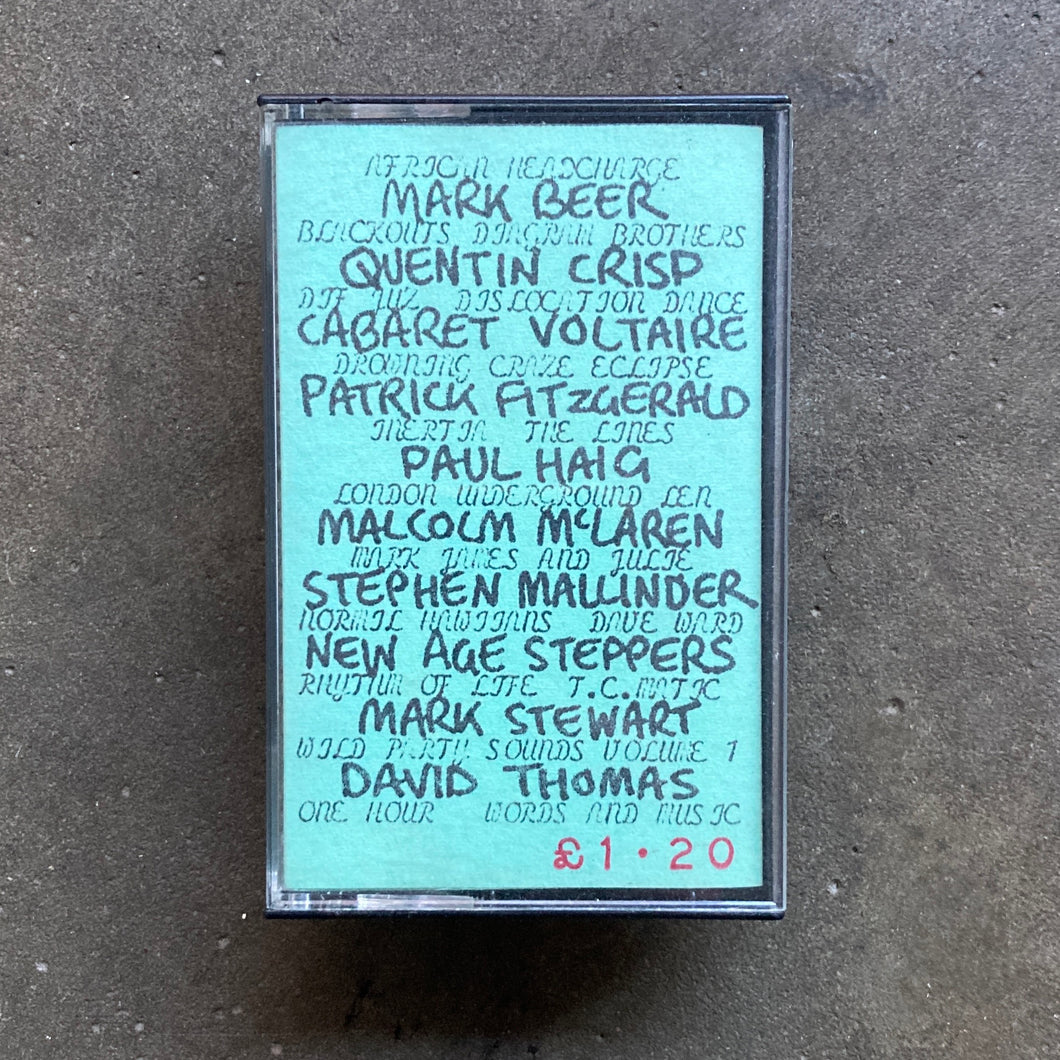 AFRICAN HEADCHARGE
MARK BEER
BLACKOUTS DIAGRAM BROTHERS
QUENTIN CRISP
DIF JUZ DISLOCATION DANCE
CABARET VOLTAIRE
DROWNING CRAZE ECLIPSE
PATRICK FITZGERALD
INERTIA THE LINES
PAUL HAIG
LONDON UNDERGROUND LEN
MALCOLM McLAREN
MARK JAMES AND JULIE
STEPHEN MALLINDER
NORMIL HAWIIANS DAVE WARD
NEW AGE STEPPERS
RHYTHM OF LIFE T.C.MATIC
MARK STEWART
WILD PARTY SOUNDS VOLUME 1
DAVID THOMAS
ONE HOUR WORDS AND MUSIC
£1·20